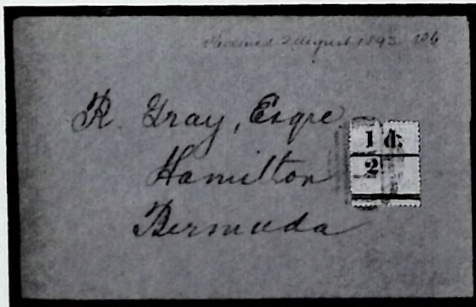 Received 2 August 1893 106
R. Gray, Esqre
Hamilton
Bermuda
1 d.
2